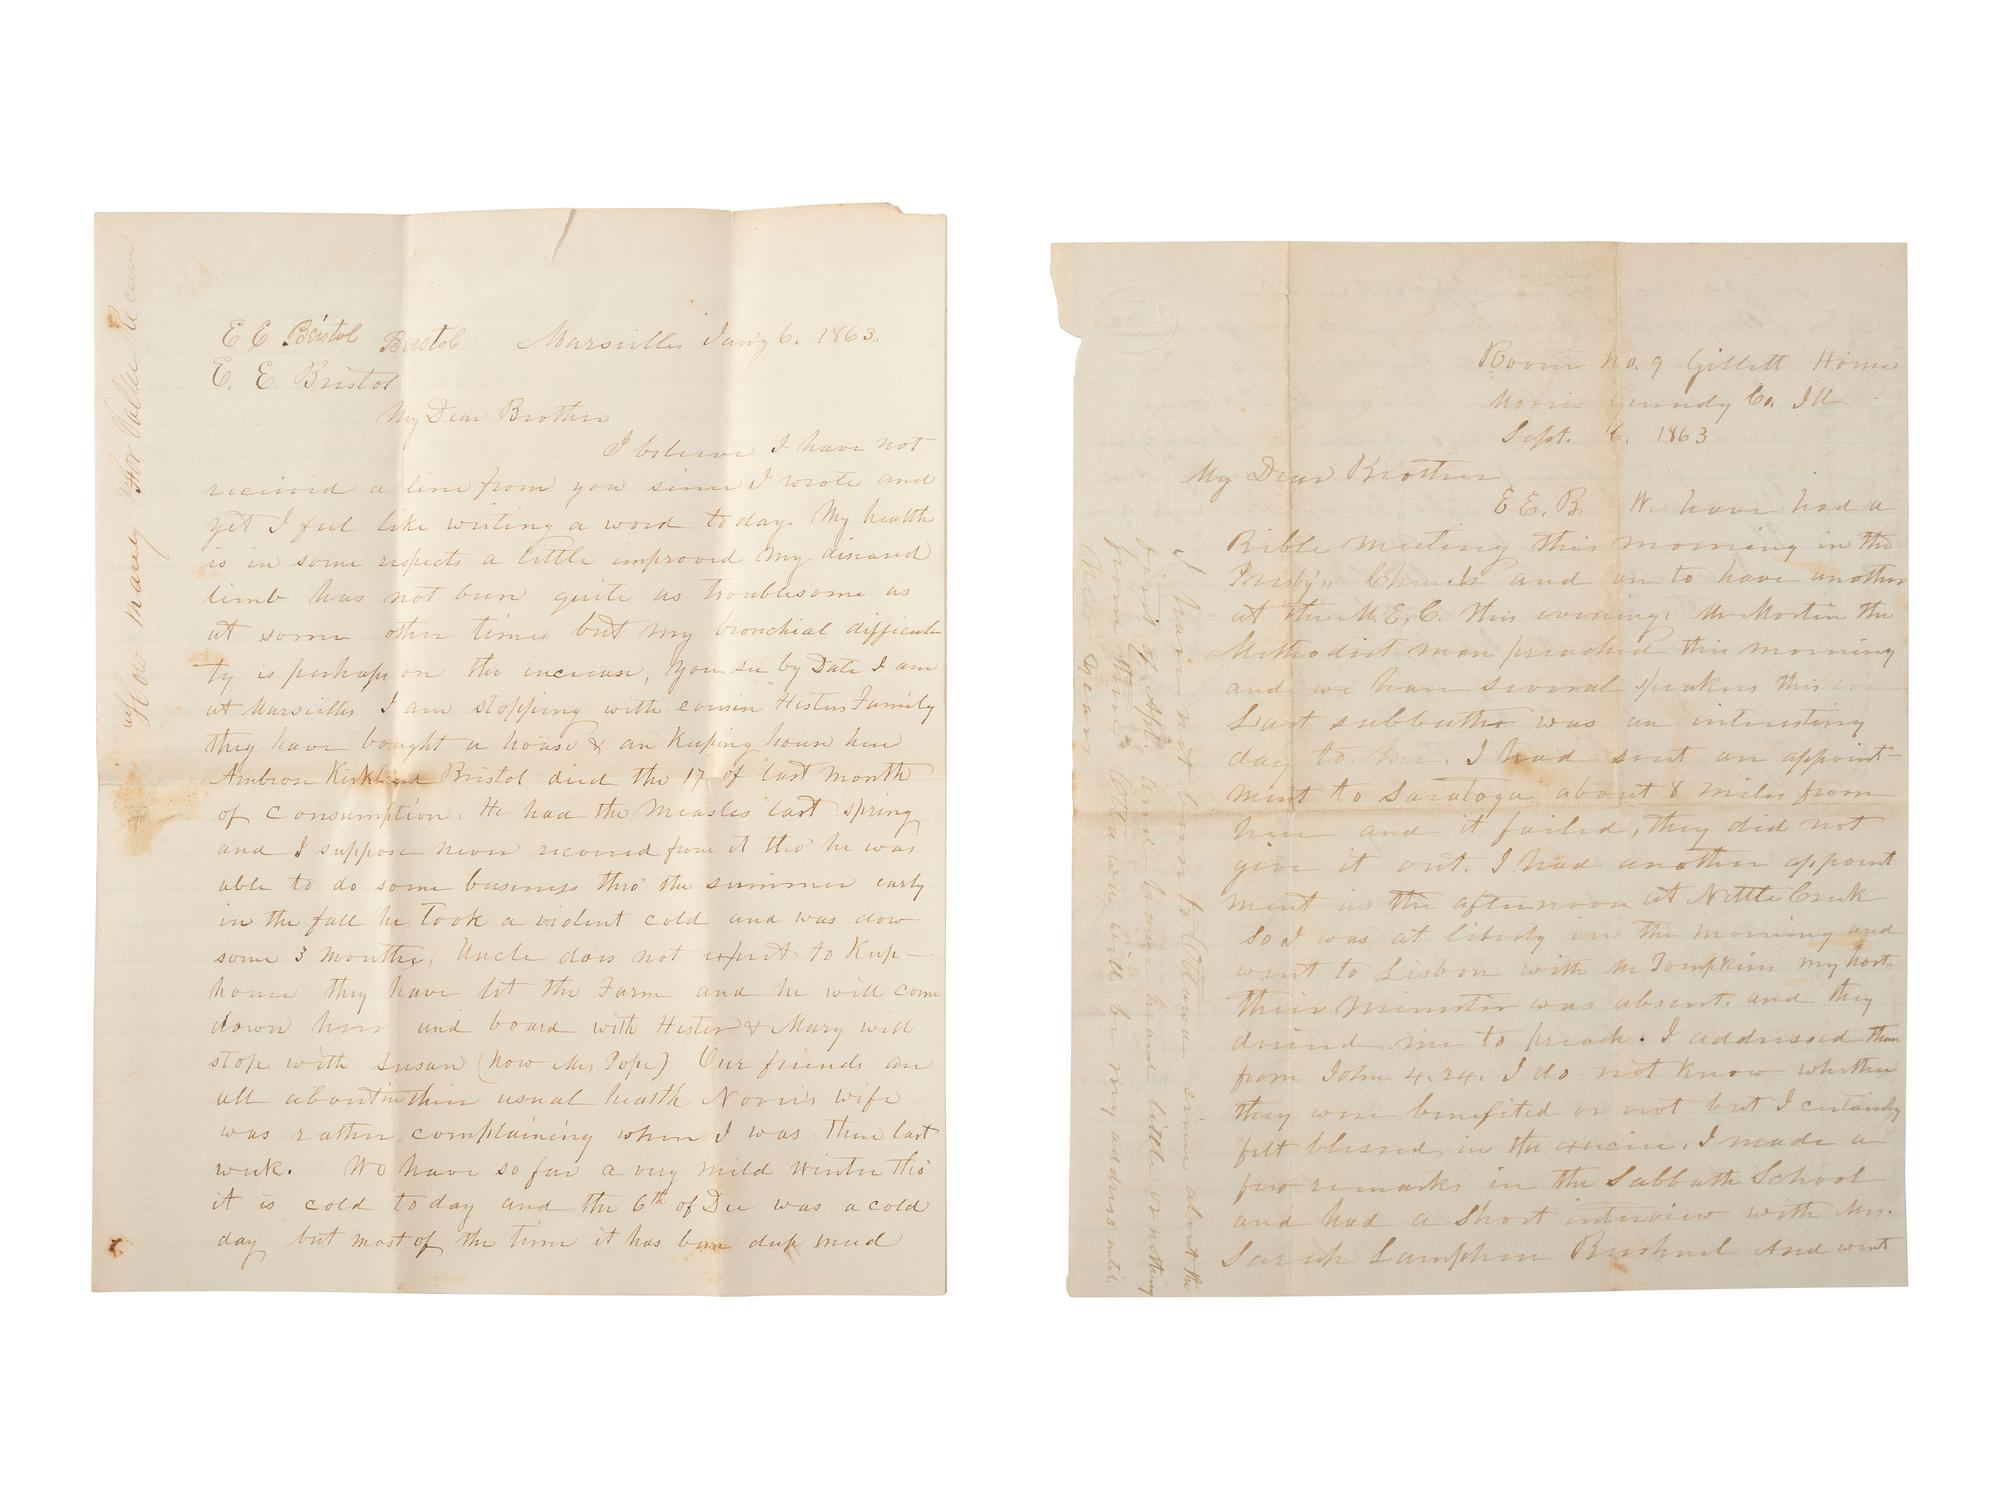 E E Bristol Bristol Marsvilles Jany 6. 1863.
E. E. Bristol
My Dear Brother
I believe I have not
received a line from you since I wrote and
yet I feel like writing a word to day. My health
is in some respects a little improved my diseased
limb has not been quite as troublesome as
at some other times but my bronchial difficul
ty is perhaps on the increase, You see by Date I am
at Marsvilles I am stopping with cousin Hesters Family
they have bought a house & are keeping house here
Ambrose Kirkland Bristol died the 17 of last month
of consumption. He had the measles last spring
and I suppose never recovered from it tho he was
able to do some business thro the summer early
in the fall he took a violent cold and was dow
some 3 months, Uncle does not expect to keep
house they have let the Farm and he will come
down here and board with Hester & Mary will
stop with Susan (now Mrs Pope) Our friends are
all about in their usual health Norris wife
was rather complaining when I was there last
week. We have so far a very mild winter tho
it is cold to day and the 6th of Dec was a cold
day but most of the time it has been deep mud
How many
Room No. 9 Gillett House
Morris Grundy Co. Ill
Sept. 6. 1863
My Dear Brother
E E. B. We have had a
Bible meeting this morning in the
Presby'n Church and are to have another
at the M. E. C. this evening. Mr Martin the
Methodist man preached this morning
and we have several speakers this eve
Last sabbath was an interesting
day to me. I had sent an appoint-
ment to Saratoga about 8 miles from
here and it failed, they did not
give it out. I had another appoint
ment in the afternoon at Nettle Creek
So I was at liberty in the morning and
went to Lisbon with Mr Tompkins my host
their Minister was absent. and they
desired me to preach. I addressed them
from John 4. 24. I do not know whether
they were benefited or not but I certainly
felt blessed in the exercise. I made a
few remarks in the Sabbath School
and had a short interview with Mrs.
Sarah Lamphere Bushnel And went
I have not been to Ottawa since about the
first of Apl. and have heard little or nothing
from there Ottawa will be my address until
New Year